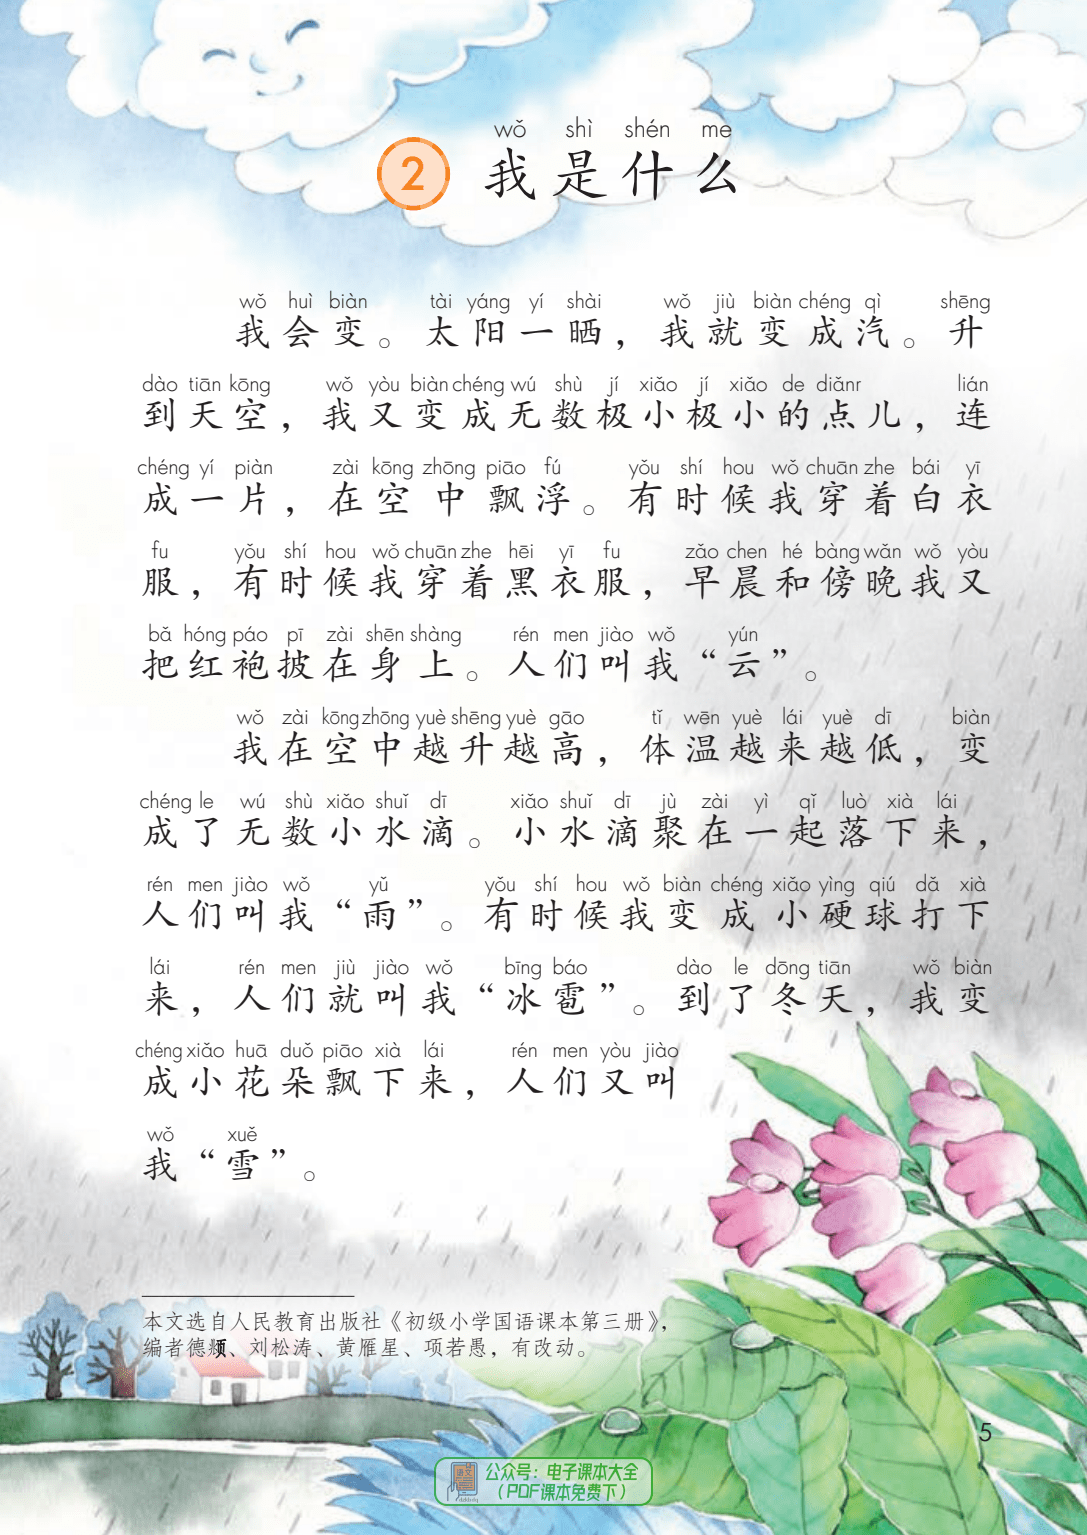 wǒ shì shén me
2 我是什么
wǒ huì biàn tài yáng yí shài wǒ jiù biàn chéng qì shēng
我会变。太阳一晒，我就变成汽。升
dào tiān kōng wǒ yòu biàn chéng wú shù jí xiǎo jí xiǎo de diǎnr lián
到天空，我又变成无数极小极小的点儿，连
chéng yí piàn zài kōng zhōng piāo fú yǒu shí hou wǒ chuān zhe bái yī
成一片，在空中飘浮。有时候我穿着白衣
fu yǒu shí hou wǒ chuān zhe hēi yī fu zǎo chen hé bàng wǎn wǒ yòu
服，有时候我穿着黑衣服，早晨和傍晚我又
bǎ hóng páo pī zài shēn shàng rén men jiào wǒ yún
把红袍披在身上。人们叫我“云”。
wǒ zài kōng zhōng yuè shēng yuè gāo tǐ wēn yuè lái yuè dī biàn
我在空中越升越高，体温越来越低，变
chéng le wú shù xiǎo shuǐ dī xiǎo shuǐ dī jù zài yì qǐ luò xià lái
成了无数小水滴。小水滴聚在一起落下来，
rén men jiào wǒ yǔ yǒu shí hou wǒ biàn chéng xiǎo yìng qiú dǎ xià
人们叫我“雨”。有时候我变成小硬球打下
lái rén men jiù jiào wǒ bīng báo dào le dōng tiān wǒ biàn
来，人们就叫我“冰雹”。到了冬天，我变
chéng xiǎo huā duǒ piāo xià lái rén men yòu jiào
成小花朵飘下来，人们又叫
wǒ xuě
我“雪”。
本文选自人民教育出版社《初级小学国语课本第三册》，
编者德、刘松涛、黄雁星、项若愚，有改动。
5
公众号：电子课本大全
（PDF课本免费下）